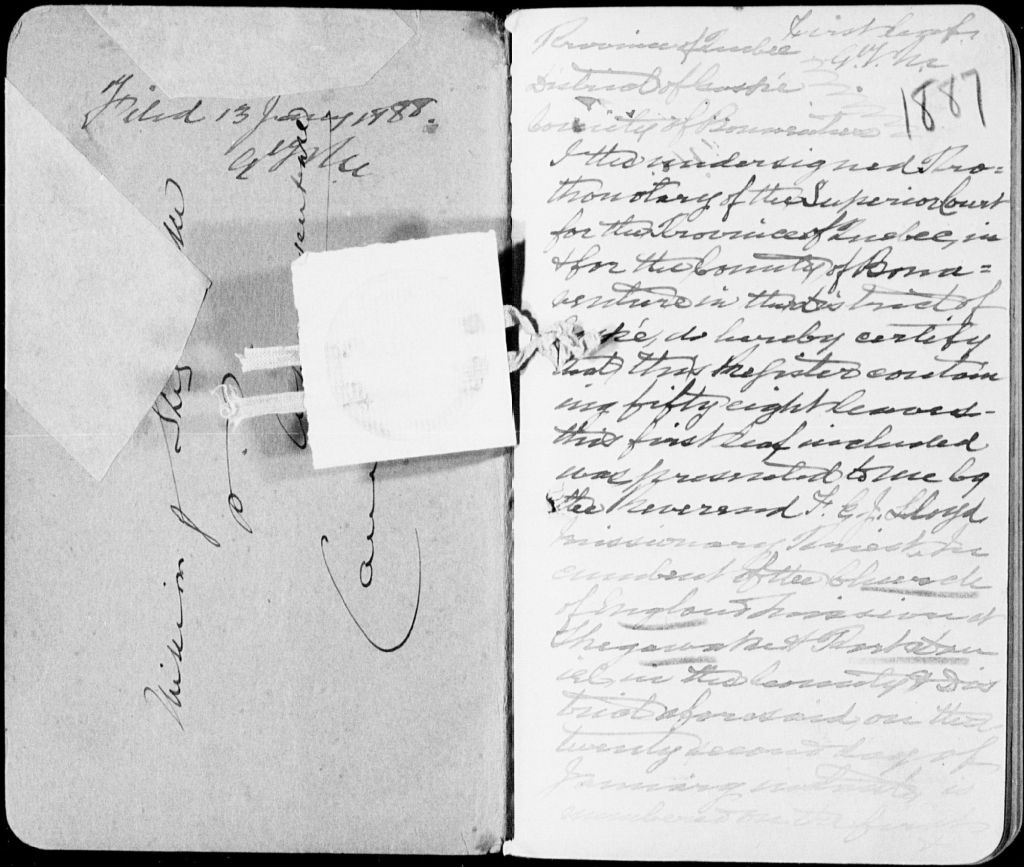 Filed 13 Jany 1888.
Mission of Shig
Province of Quebec
First leaf.
District of Gaspé
1887
County of Bonaventure
I the undersigned Pro=
thonotary of the Superior Court
for the Province of Quebec, in
& for the County of Bona=
venture in the district of
do hereby certify
that this Register contain
ing fifty eight leaves -
this first leaf included
was presented to me by
the Reverend F. E. J. Lloyd
missionary Priest, In
cumbent of the Church
of England Mission at
Shegawake & Port dan
iel in the County & Dis
trict aforesaid, on the
twenty second day of
January instant, is
numbered on the first